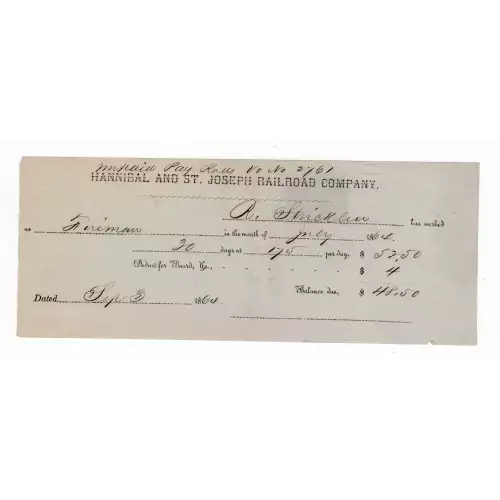 unpaid Pay Roll Vo No 2761
HANNIBAL AND ST. JOSEPH RAILROAD COMPANY.
R. Stricklen has worked
as Fireman in the month of July 1864.
30 days at 175 per day, $ 52.50
Deduct for Board, &c., - - - - - $ 4
Balance due, $ 48.50
Dated Sep. 3 1864